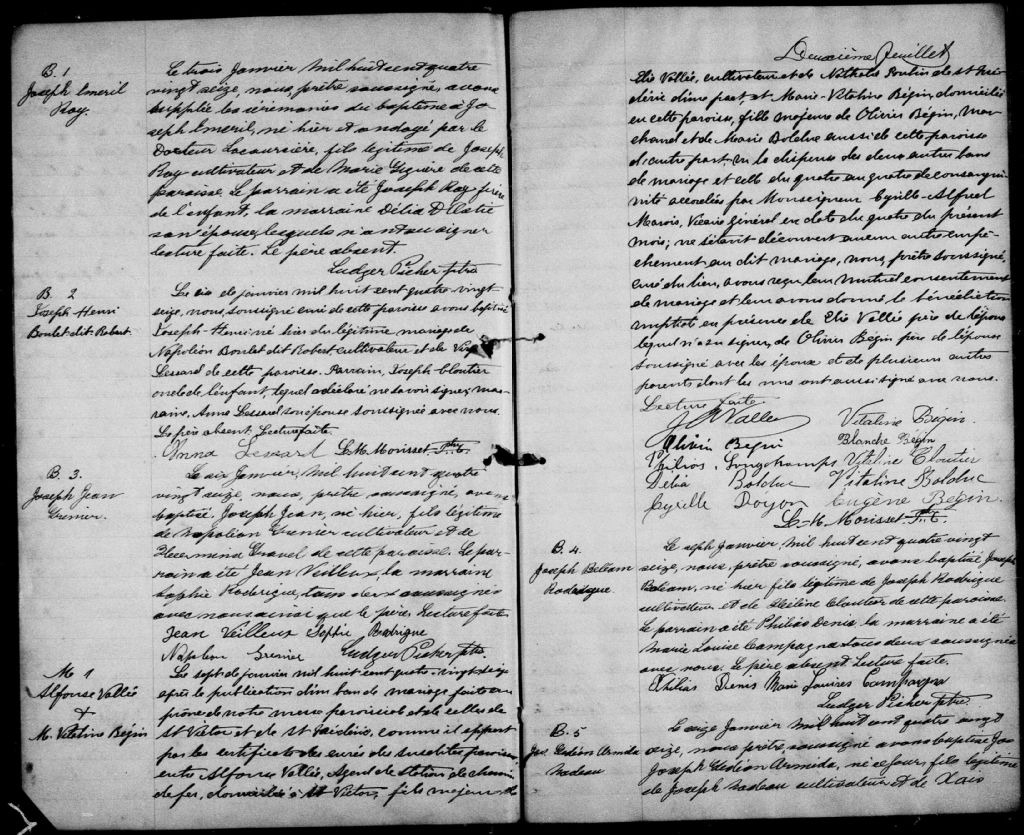 B. 1
Joseph Emeril
Roy.
Le trois Janvier mil huit cent quatre
vingt seize, nous, prêtre soussigné, avons
supplée les cérémonies du baptême à Jo
seph Emeril, né hier et ondoyé par le
Docteur Lacoursière, fils légitime de Joseph
Roy cultivateur et de Marie Giguère de cette
paroisse. Le parrain a été Joseph Roy frère
de l'enfant, la marraine Délia
son épouse lesquels n'ont su signer
lecture faite. Le père absent.
Ludger Picher ptre
B. 2
Joseph Henri
Boulet dit Robert
Le six de janvier mil huit cent quatre vingt
seize, nous, soussigné curé de cette paroisse avons baptisé
Joseph-Henri né hier du légitime mariage de
Napoléon Boulet dit Robert, cultivateur et de
Lessard de cette paroisse. Parrain, Joseph Cloutier
oncle de l'enfant, lequel a déclaré ne savoir signer; mar
raine, Anna Lessard son épouse soussignée avec nous.
Le père absent. Lecture faite
Anna Lessard L. H. Morisset Ptre
B. 3.
Joseph Jean
Grenier.
Le six Janvier, mil huit cent quatre
vingt seize, nous, prêtre soussigné, avons
baptisé Joseph Jean, né hier, fils légitime
de Napoléon Grenier cultivateur et de
Gravel de cette paroisse. Le par-
rain a été Jean Veilleux, la marraine
Sophie Roderigue, tous deux soussignés
avec nous ainsi que le père. Lecture faite
Jean Veilleux Sophie Rodrigue
Napoleon Grenier Ludger Picher ptre
M 1
Alfonse Vallée
+
M. Vitaline Bégin
Le sept de janvier mil huit cent quatre-vingt seize
après la publication d'un ban de mariage faite au
prône de notre messe paroissiale et de celles de
St Victor et de St comme il appert
par les certificats des curés des susdites paroisses
entre Alfonse Vallée, Agent de Station de chemin
de fer, domicilié à St Victor, fils majeur de
Deuxième feuillet
Elie Vallée, cultivateur et de Nathalie Poulin de St Fré
déric d'une part, et Marie-Vitaline Bégin, domiciliée
en cette paroisse, fille majeure de Olivier Bégin, mar
chand et de Marie Bolduc aussi de cette paroisse
d'autre part, vu la dispense des deux autres bans
de mariage et celle du quatre au quatre de consangui
nité accordées par Monseigneur Cyrille-Alfred
Marois, Vicaire Général en date du quatre du présent
mois; ne s'étant découvert aucun autre empê-
chement au dit mariage, nous, prêtre soussigné,
curé du lieu, avons reçu leur mutuel consentement
de mariage et leur avons donné la bénédiction
nuptiale en présence de Elie Vallée père de l'époux
lequel n'a su signer, de Olivier Bégin père de l'épouse
soussigné avec les époux et de plusieurs autres
parents dont les uns ont aussi signé avec nous.
Lecture faite
J A Vallée Vitaline Bégin
Olivier Begin Blanche Bégin
Philias Longchamps Vitaline Cloutier
Délia Bolduc Vitaline Bolduc
Cyrille Doyon Eugène Bégin
L. H. Morisset Ptre
B. 4.
Joseph Beleam
Roderigue
Le sept Janvier, mil huit cent quatre vingt
seize, nous, prêtre soussigné, avons baptisé Joseph
Beleam, né hier fils légitime de Joseph Rodrigue
cultivateur et de Hélène Cloutier de cette paroisse.
Le parrain a été Philias Denis, la marraine a été
Marie Louise Campagna tous deux soussignés
avec nous. Le père absent Lecture faite.
Philias Denis Marie Louise Campagna
Ludger Picher ptre
B. 5
Jos. Gédéon Armida
Nadeau
Le seize Janvier mil huit cent quatre vingt
seize, nous prêtre soussigné avons baptisé Jos
Joseph Gédéon Armida, né ce jour, fils légitime
de Joseph Nadeau cultivateur et de